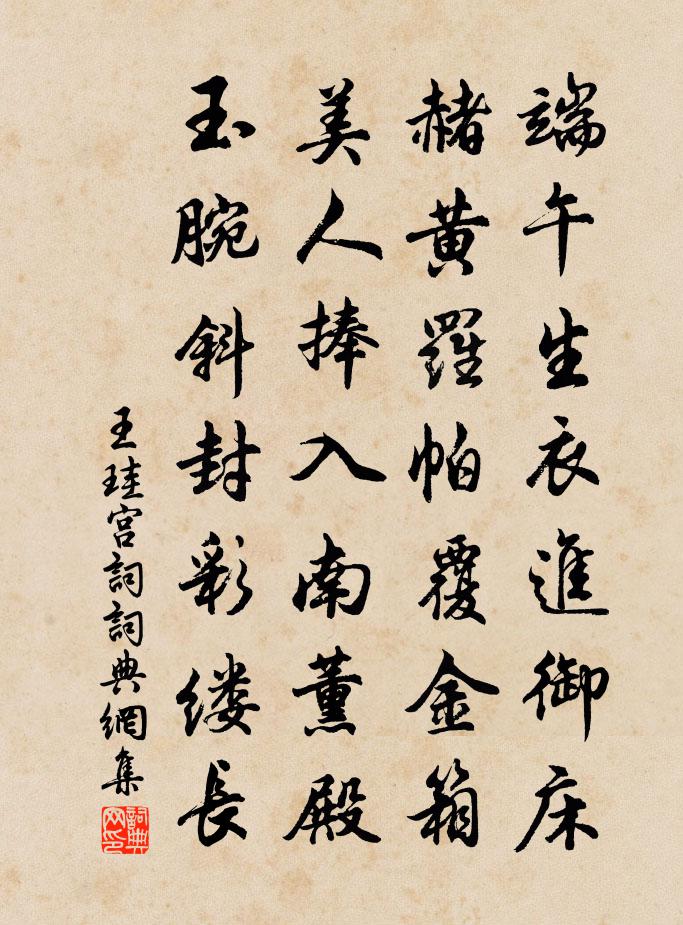 端午生衣進御床
赭黄羅帕覆金箱
美人捧入南薰殿
玉腕斜封彩缕長
王珪宫詞詞典網集
詞典网印